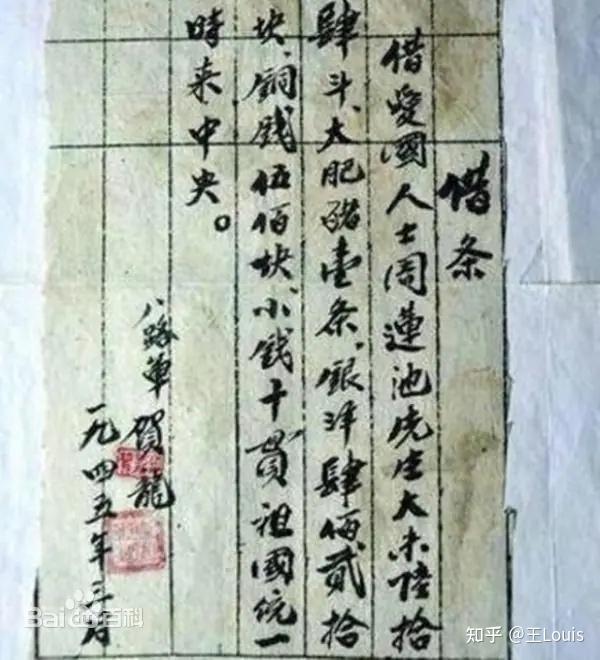 借条
借爱國人士周蓮池先生大米陸拾
肆斗、大肥豬壹条、銀洋肆佰贰拾
块、銅戋伍佰块、小戋十貫祖國统一
時来中央。
八路軍 賀龍
一九四五年三月
Bai百科
知乎 @王Louis